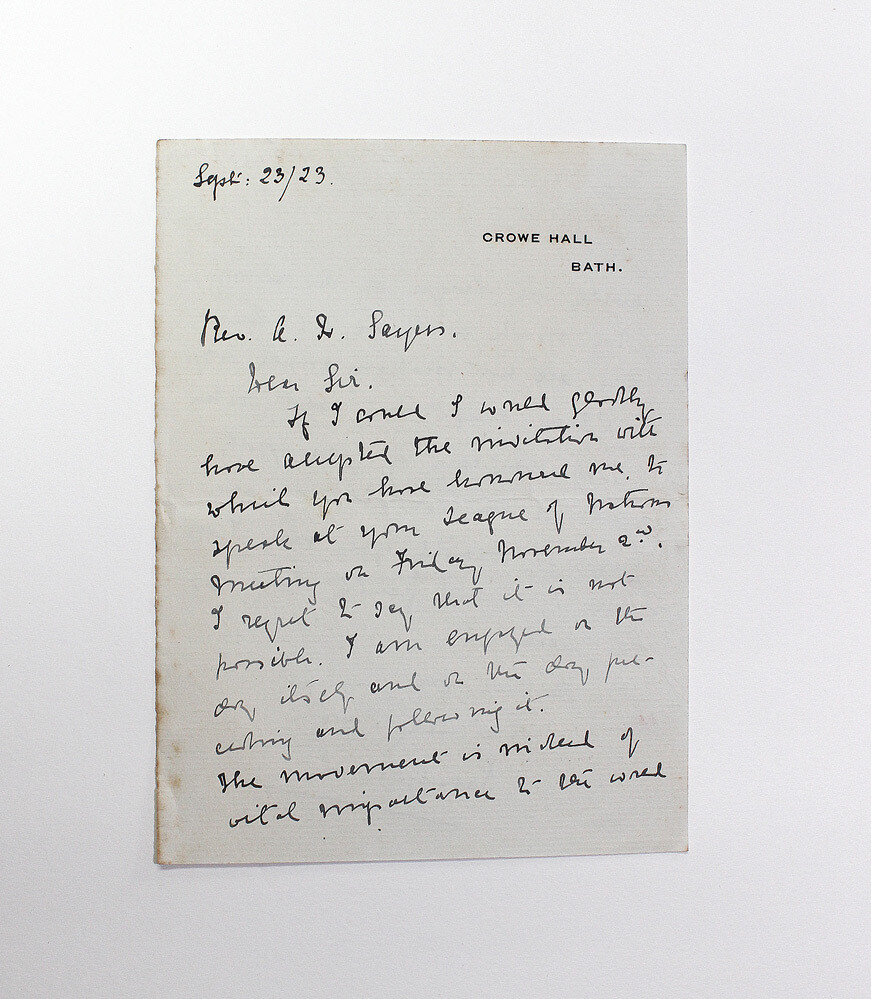 Sept: 23/23.
CROWE HALL
BATH.
Rev. A. Sayers.
Dear Sir.
If I could I would gladly
have accepted the invitation with
which you have honoured me, to
speak at your League of Nations
meeting on Friday November 2nd.
I regret to say that it is not
possible. I am engaged on the
day itself and on the day pre-
ceding and following it.
The movement is indeed of
vital importance to the world